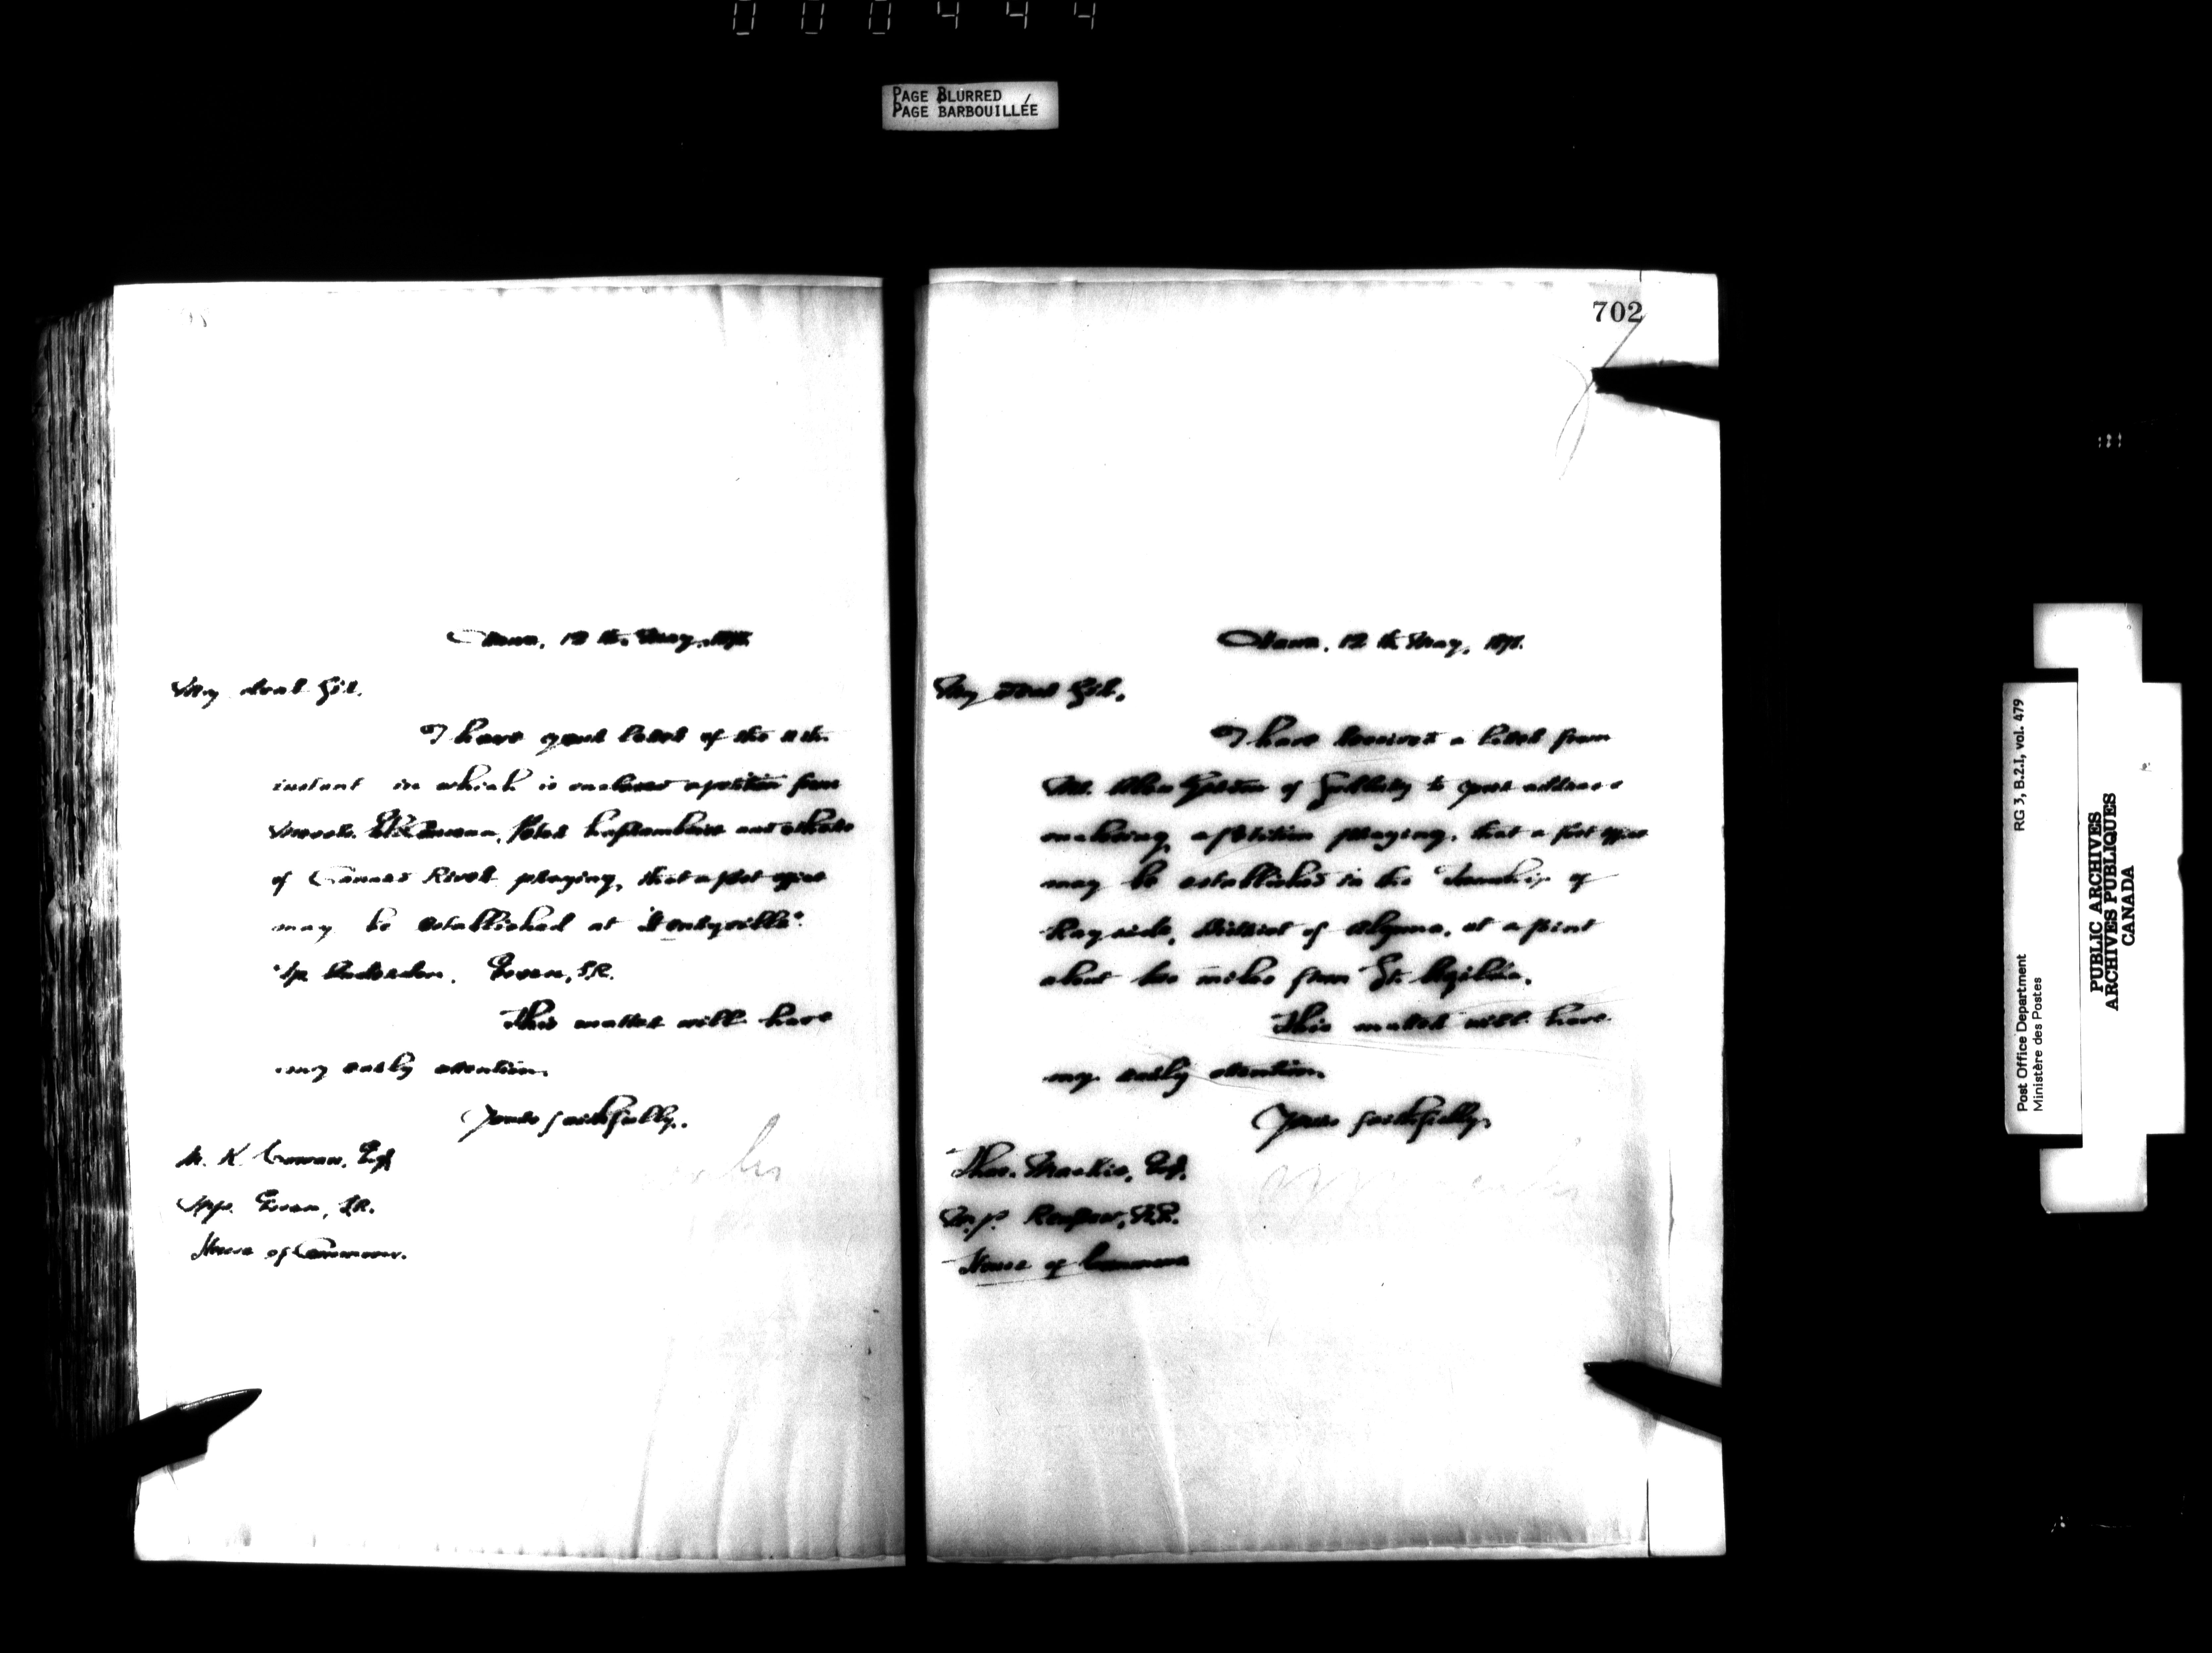 000444
PAGE BLURRED
PAGE BARBOUILLÉE
Ottawa, 12 th May, 189
My dear Sir,
I have your letter of the 11 th
instant in which is enclosed a petition from
and others
of Canard River praying, that a post office
may be established at
Essex, S.R.
This matter will have
my early attention.
Yours faithfully,
M. K. Cowan, Esq
M.P. Essex, S.R.
House of Commons.
702
Ottawa, 12 th May, 189
My dear Sir,
I have received a letter from
Mr. of Sudbury to your address
enclosing a petition praying, that a post office
may be established in the Township of
Rayside, District of Algoma, at a point
about two miles from St.
This matter will have
my early attention.
Yours faithfully,
Thos. Mackie, Esq.
M.P. Renfrew, N.R.
House of Commons
RG 3, B.2.I, vol. 479
Post Office Department
Ministère des Postes
PUBLIC ARCHIVES
ARCHIVES PUBLIQUES
CANADA